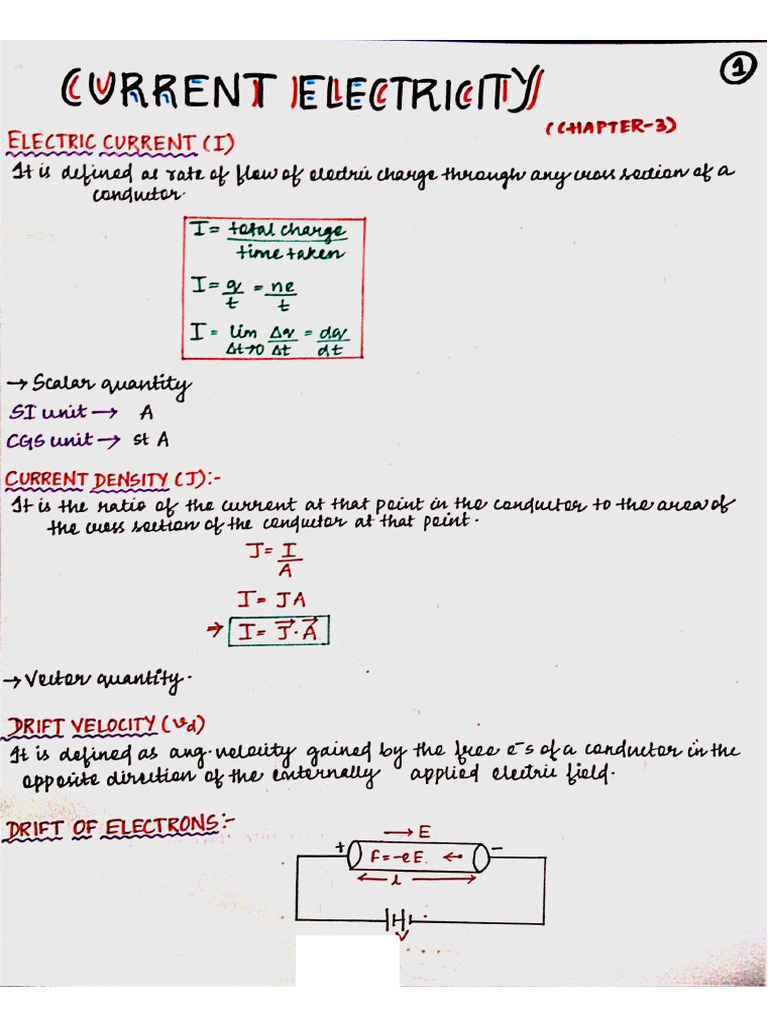 1
CURRENT ELECTRICITY
(CHAPTER-3)
ELECTRIC CURRENT (I)
It is defined as rate of flow of electric charge through any cross section of a
conductor.
I = total charge / time taken
I = q/t = ne/t
I = lim Δt→0 Δq/Δt = dq/dt
→ Scalar quantity
SI unit → A
CGS unit → st A
CURRENT DENSITY (J):-
It is the ratio of the current at that point in the conductor to the area of
the cross section of the conductor at that point.
J = I/A
I = JA
⇒ I = J⃗·A⃗
→ Vector quantity.
DRIFT VELOCITY (vd)
It is defined as avg. velocity gained by the free e⁻s of a conductor in the
opposite direction of the externally applied electric field.
DRIFT OF ELECTRONS:-
→ E
+ F = -eE. ← −
← l →
V